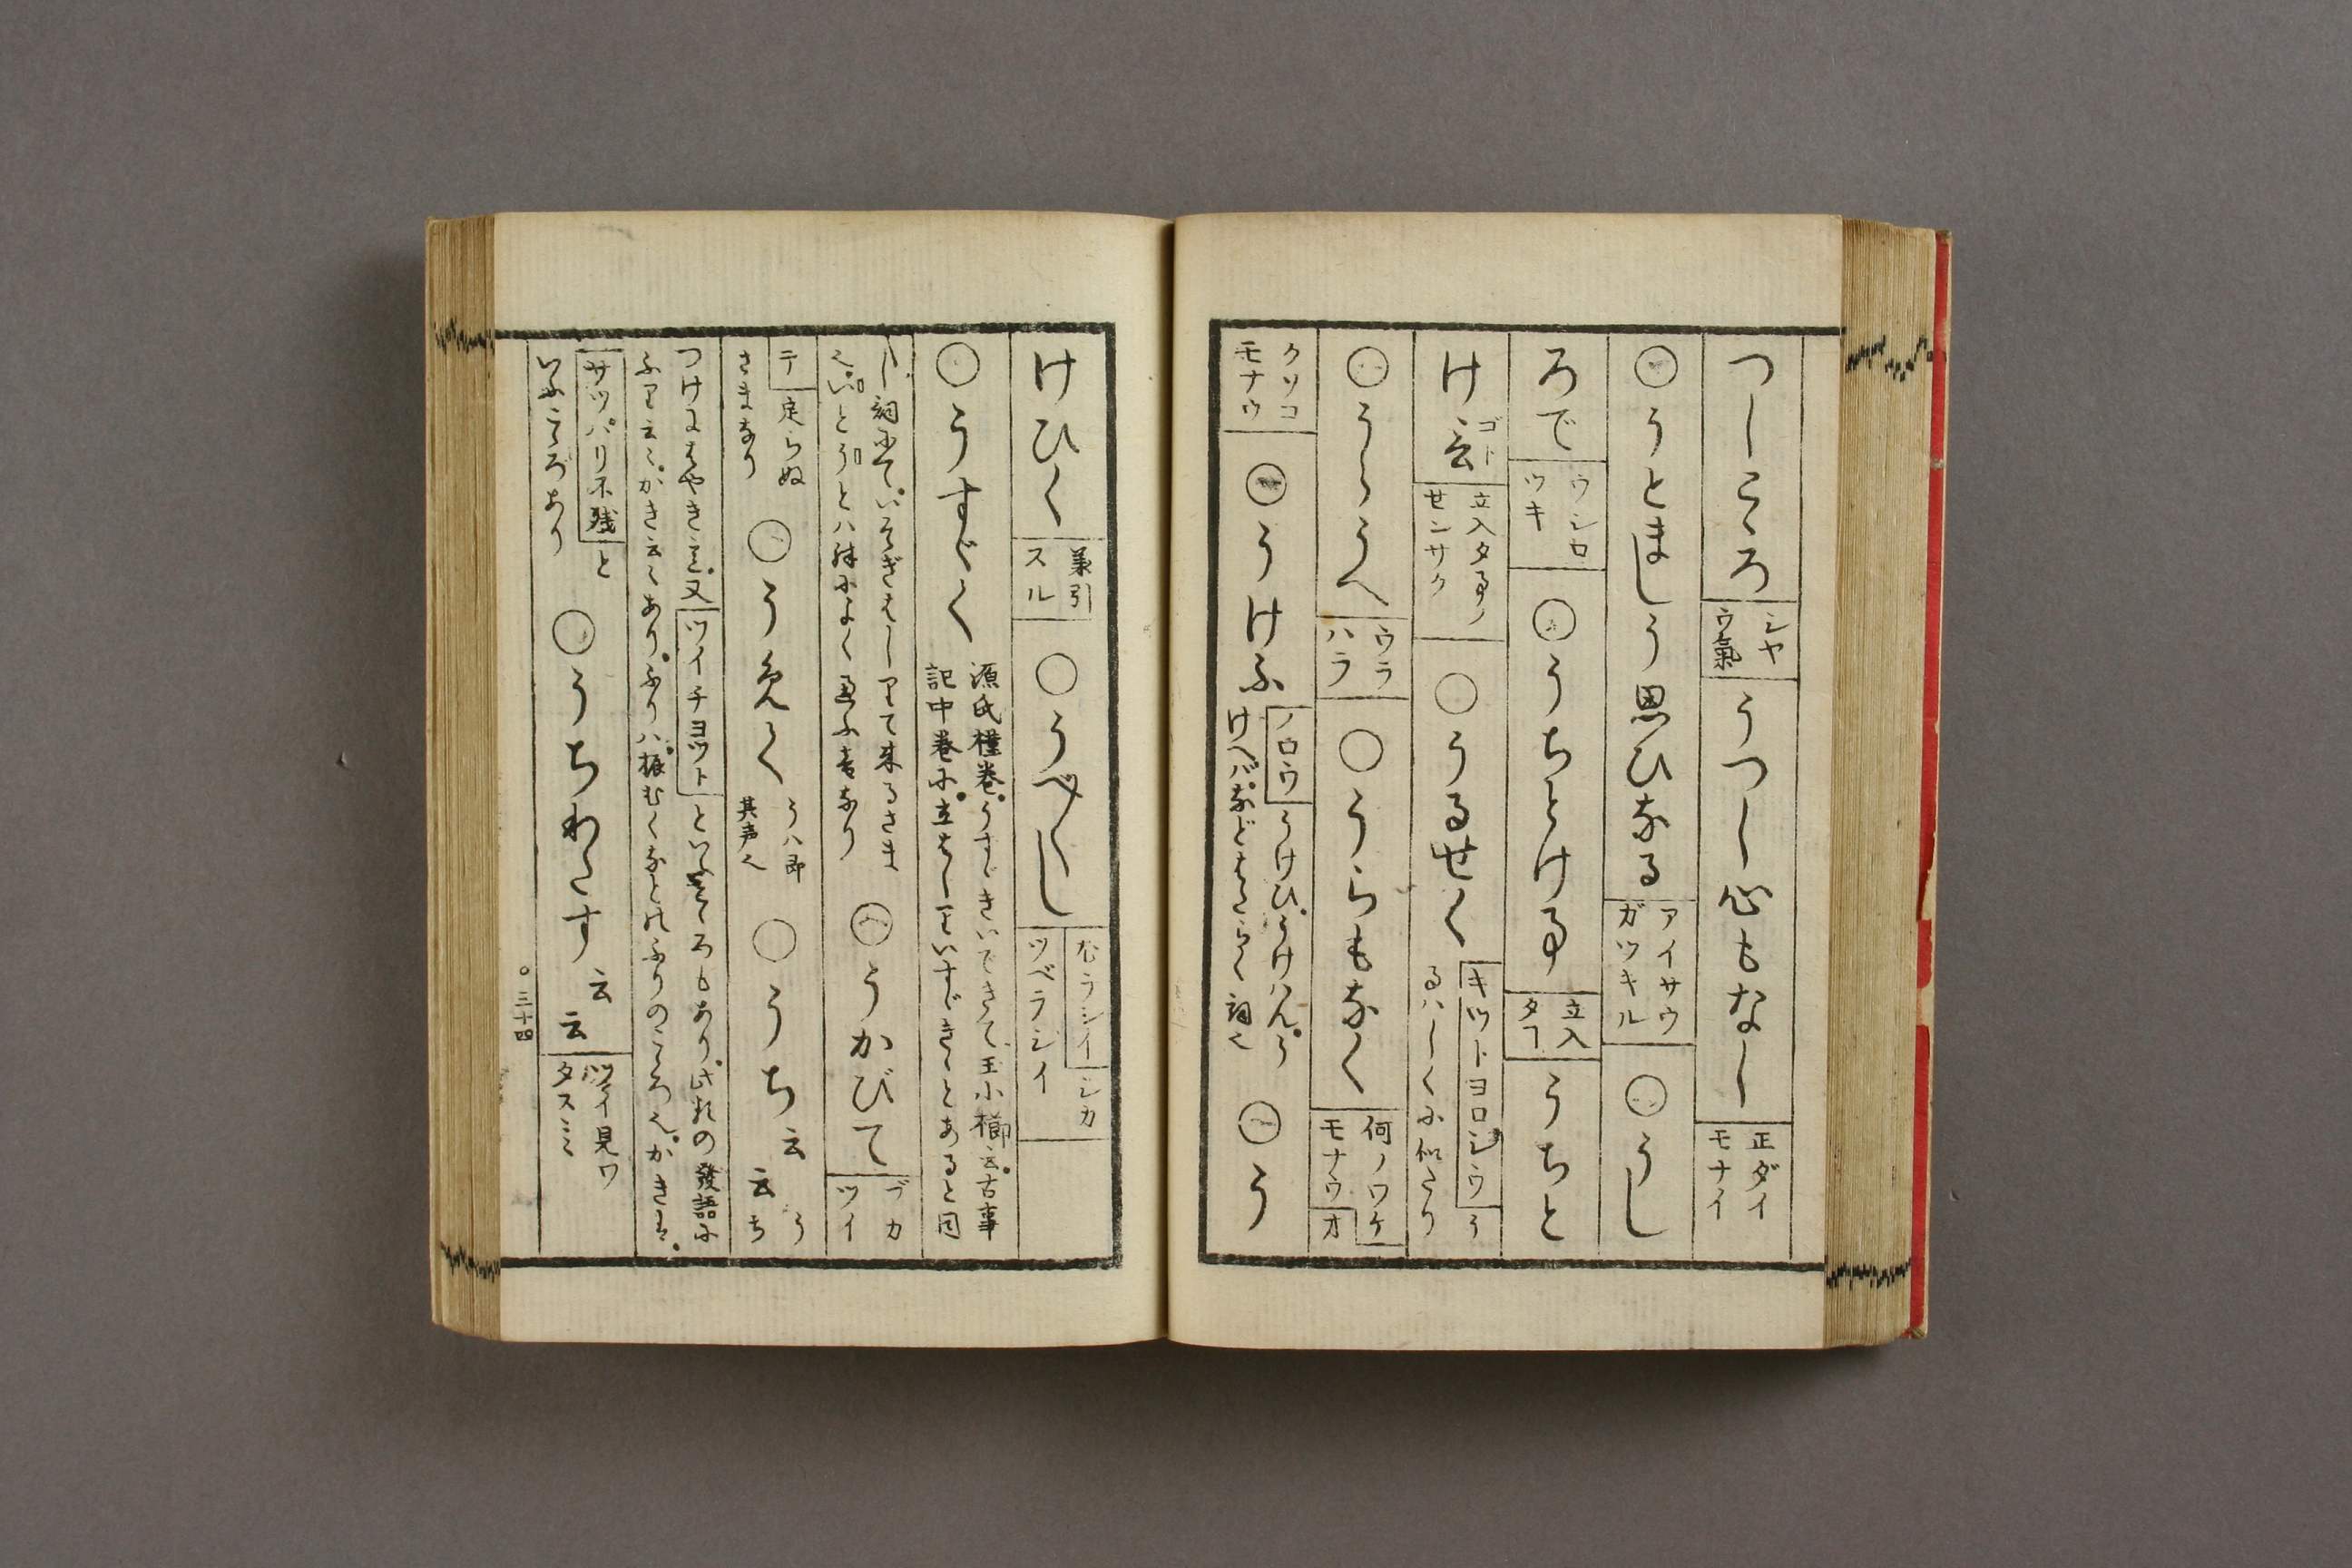 つしこゝろ シヤウ氣 うつし心もなし 正ダイモナイ
○うとましう思ひなる アイサウガツキル ○うし
ろで ウシロツキ ○うちとけ事 立入タヿ うちと
け言ゴト 立入タ事ノセンサク ○うるせく キツトヨロシウ うるハしくに似たり
○うらうへ ウラハラ ○うらもなく 何ノワケモナウ オ
クソコモナウ ○うけふ ノロウ うけひ。うけはん。うけへバ。などはたらく詞也 ○う
けひく 兼引スル ○うべ〳〵し 尤ラシイ シカツベラシイ
○うすゞく 源氏槿巻。うすゞきいできて、玉小櫛云。古事記中巻に。立はしりいすゞきゝとあると同
じ詞にて。いそぎはしりて来るさま也。いとうとハ殊によく通ふ音なり ○うかびて ヅカツイ
テ 定らぬさまなり ○うめく うハ即其声也 ○うち云云 うち
つけにはやきを。又 ツイチヨツト といふこゝろもあり。此外の發語に
ふり云々。かき云々あり。ふりハ振むくなどのふりのこゝろ也。かきは。
サツパリ不残 といふこゝろあり ○うちわたす云云 ツイ見ワタスミミ
○三十四